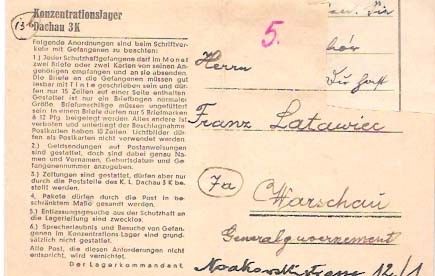 13b
Konzentrationslager
Dachau 3K
Folgende Anordnungen sind beim Schriftver-
kehr mit Gefangenen zu beachten:
1.) Jeder Schutzhaftgefangene darf im Monat
zwei Briefe oder zwei Karten von seinen An-
gehörigen empfangen und an sie absenden.
Die Briefe an die Gefangenen müssen gut
lesbar mit Tinte geschrieben sein und dür-
fen nur 15 Zeilen auf einer Seite enthalten
Gestattet ist nur ein Briefbogen normaler
Größe. Briefumschläge müssen ungefüttert
sein. In einem Briefe dürfen nur 5 Briefmarken
à 12 Pfg. beigelegt werden. Alles andere ist
verboten und unterliegt der Beschlagnahme
Postkarten haben 10 Zeilen. Lichtbilder dür-
fen als Postkarten nicht verwendet werden.
2.) Geldsendungen auf Postanweisungen
sind gestattet, doch sind dabei genau Na-
men und Vornamen, Geburtsdatum und Ge-
fangenennummer anzugeben.
3.) Zeitungen sind gestattet, dürfen aber nur
durch die Poststelle des K. L. Dachau 3 K be-
stellt werden.
4. Pakete dürfen durch die Post in be-
schränktem Maße gesandt werden.
5.) Entlassungsgesuche aus der Schutzhaft an
die Lagerleitung sind zwecklos.
6.) Sprecherlaubnis und Besuche von Gefan-
genen im Konzentrations-Lager sind grund-
sätzlich nicht gestattet.
Alle Post, die diesen Anforderungen nicht
entspricht, wird vernichtet.
Der Lagerkommandant.
5.
Herrn
Franz Latawiec
7a
Warschau
Generalgouvernement
12/1